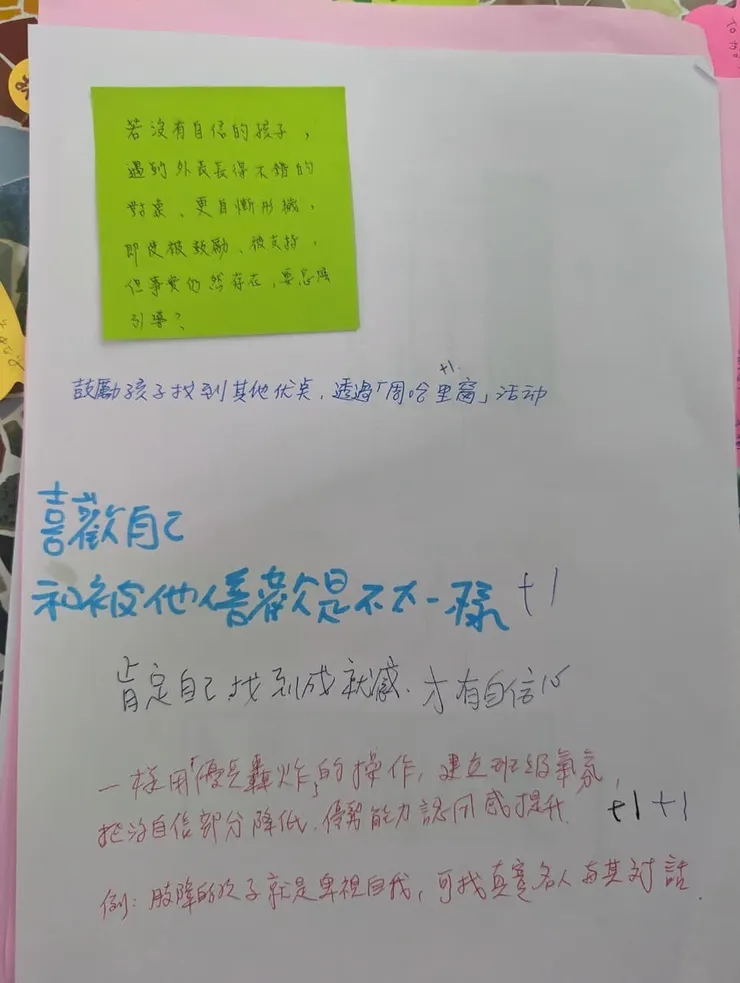 若沒有自信的孩子，
遇到外表長得不錯的
對象、更自慚形穢，
即使被鼓勵、被支持，
但事實仍然存在，要怎麼
引導？
+1
鼓勵孩子找到其他优点，透過「周哈里窗」活动
喜歡自己
和被他人喜歡是不太一樣 +1
肯定自己找到成就感、才有自信
一樣用「優點轟炸」的操作，建立班級氣氛，
把沒自信部分降低、優勢能力認同感提升 +1 +1
例：肢障的孩子就是卑視自我，可找真實名人與其對話.